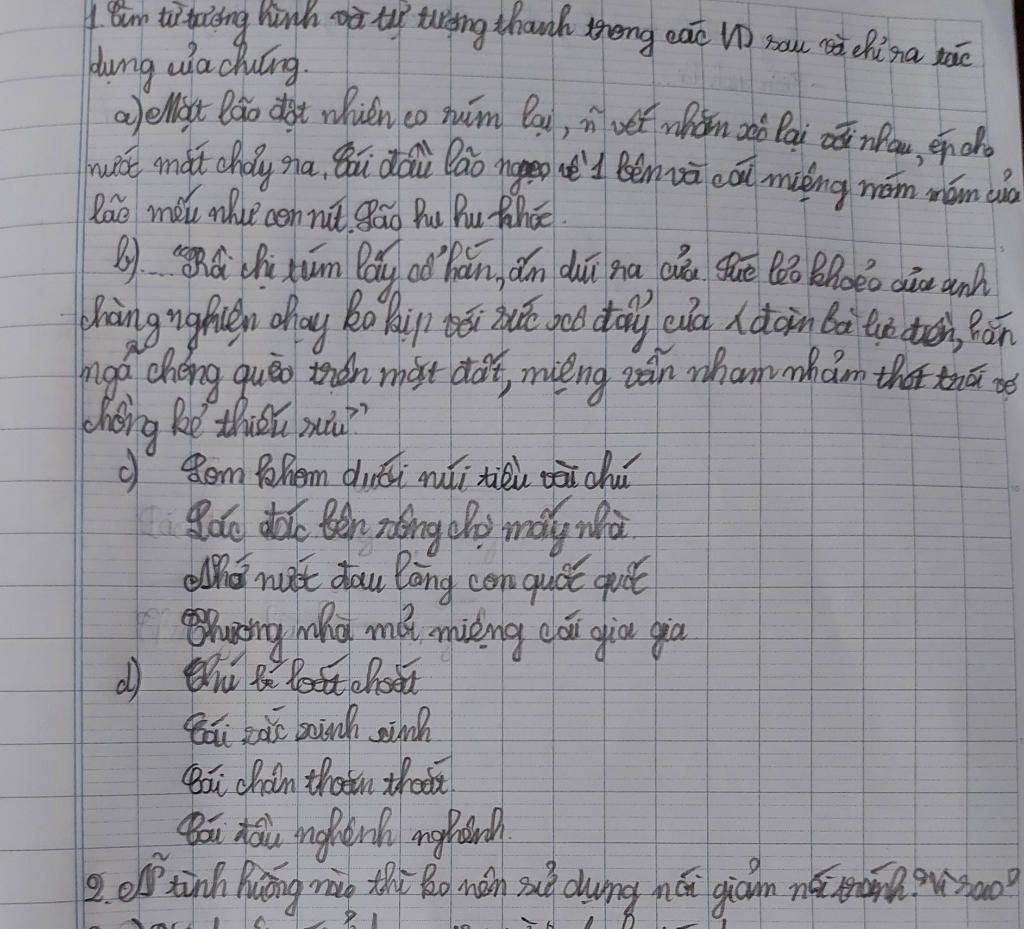 1 Tìm từ tượng hình và từ tượng thanh trong các VD sau và chỉ ra tác
dụng của chúng.
a) Mặt lão đột nhiên co rúm lại, ~n vết nhăn xô lại với nhau, ép cho
nước mắt chảy ra, Cái đầu lão ngẹo về 1 bên và cái miệng móm mém của
lão mếu như con nít. Lão hu hu khóc.
b)... "Rồi chị túm lấy cổ hắn, ấn dúi ra cửa. Sức lẻo khoẻo của anh
chàng nghiện chạy ko kịp với sức xô đẩy của đàn bà lực điền, hắn
ngã chỏng quèo trên mặt đất, miệng vẫn nham nhảm thét trói vợ
chồng kẻ thiếu sưu"
c) Lom khom dưới núi tiều vài chú
Lác đác bên sông chợ mấy nhà
Nhớ nước đau lòng con quốc quốc
Thương nhà mỏi miệng cái gia gia
d) Chú bé loắt choắt
Cái xắc xinh xinh
Cái chân thoăn thoắt
Cái đầu nghênh nghênh.
2. ~N tình huống nào thì ko nên sử dụng nói giảm nói tránh? Vì sao?